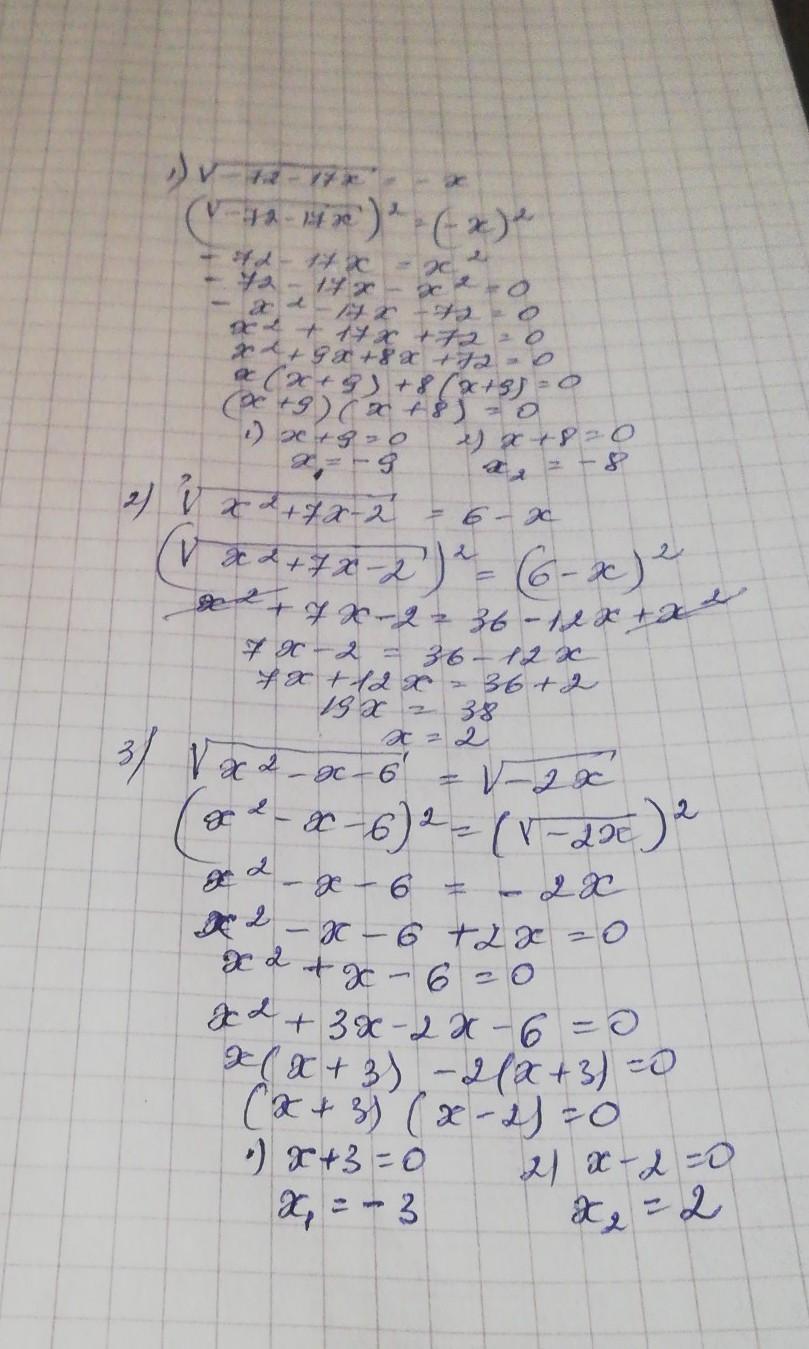 1) √-72-17x = -x
(√-72-17x)² = (-x)²
-72-17x = x²
-72-17x-x² = 0
-x²-17x-72 = 0
x²+17x+72 = 0
x²+9x+8x+72 = 0
x(x+9)+8(x+9) = 0
(x+9)(x+8) = 0
1) x+9=0 2) x+8=0
x₁=-9 x₂=-8
2) ²√x²+7x-2 = 6-x
(√x²+7x-2)² = (6-x)²
x²+7x-2 = 36-12x+x²
7x-2 = 36-12x
7x+12x = 36+2
19x = 38
x = 2
3) √x²-x-6 = √-2x
(x²-x-6)² = (√-2x)²
x²-x-6 = -2x
x²-x-6+2x = 0
x²+x-6 = 0
x²+3x-2x-6 = 0
x(x+3)-2(x+3) = 0
(x+3)(x-2) = 0
1) x+3=0 2) x-2=0
x₁=-3 x₂=2